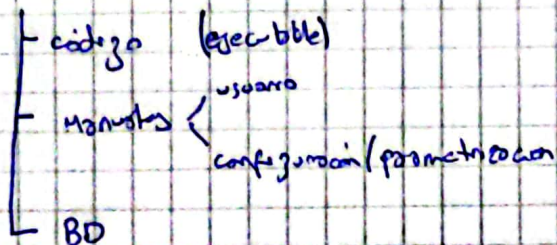 código (ejecutable)
Manuales
usuario
configuración / parametrización
BD